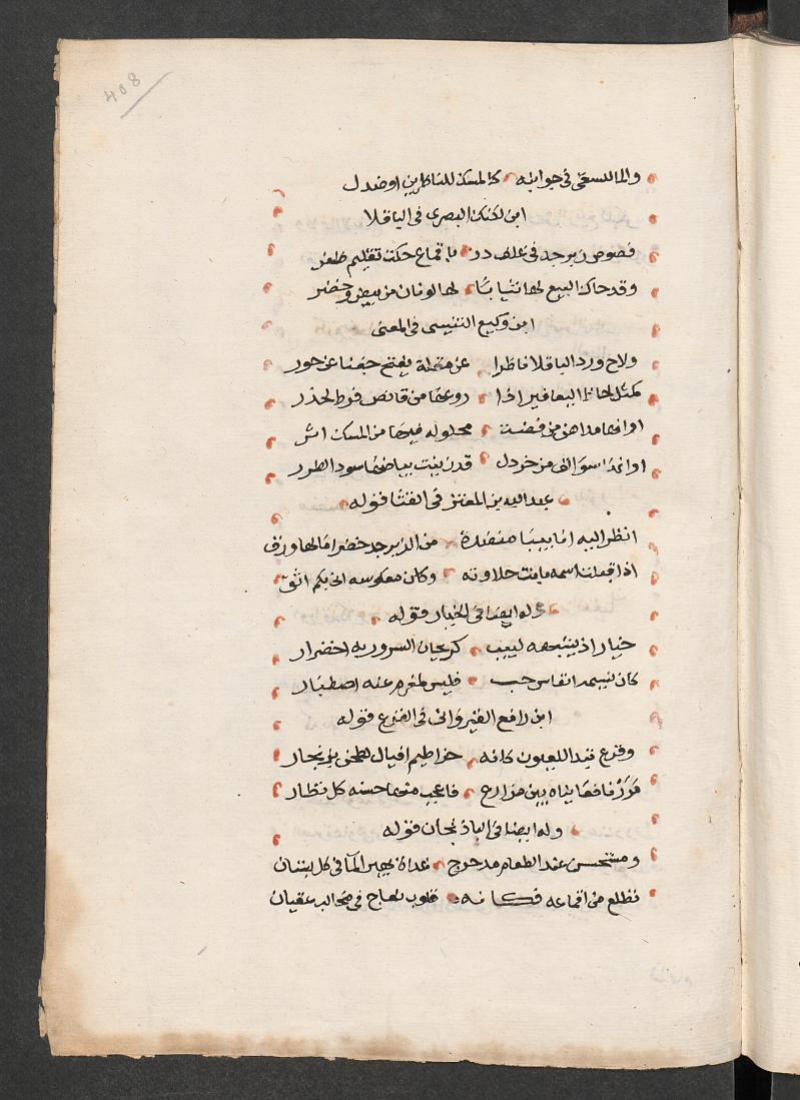 408
والما للسعى فى جوانبه كالمسك للناظرين او صندل
ابن لنكك البصرى فى الباقلا
فصوص زبرجد فى غلف در باقماع حكت تقليم ظفر
وقد حاك الربيع لها ثيابا لها لونان من بيض وخضر
ابن وكيع التنيسى فى المعنى
ولاح ورد الباقلا ناظرا عن مقلة يفتح جفنا عن حور
كمثل الحاظ اليعافير اذا روعها من قانص فرط الحذر
او انها مداهن من فضة محلوله فيها من المسك اثر
او انها سوالف من خردل قد زينت بياضها سود الطرر
عبد الله بن المعتز فى القثا قوله
انظر اليه انابيبا منضدة من الزبرجد خضرا مالها ورق
اذا قلبت اسمه بانت حلاوته وكان معكوسه انى بكم اثق
وله ايضا فى الخيار قوله
خيار اذ يشبهه لبيب كريحان السرور به اخضرار
كان نسيمه انفاس حب فليس لمغرم عنه اصطبار
ابن رافع القيروانى فى القرع قوله
وقرع تبد اللعيون كانه خراطيم افيال لطخن بزنجار
مررنا فعاينناه بين مزارع فاعجب منها حسنه كل نظار
وله ايضا فى الباذنجان قوله
ومستحسن عند الطعام مدحرج غداه نمير المآ فى كل بستان
تطلع من اقماعه فكانه قلوب نعاج فى مخالب عقبان